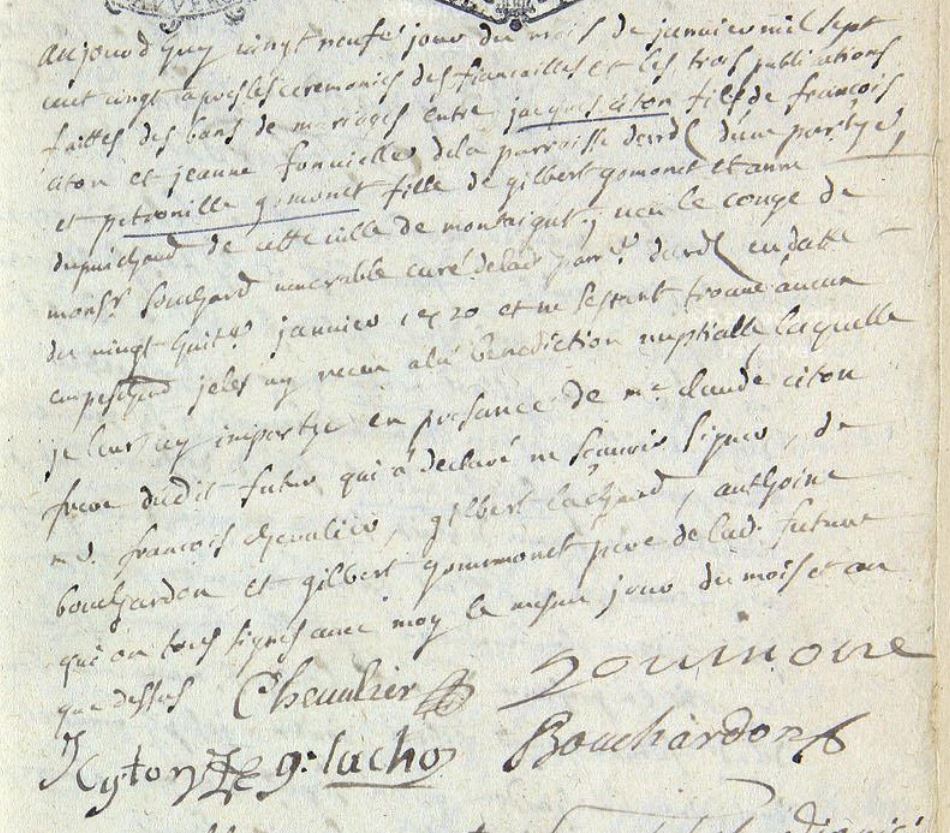 aujourd'huy vingt neufe jour du mois de janvier mil sept
cent vingt apres les ceremonies des fiancailles et les trois publications
faittes des bans de mariages entre jacques citon fils de francois
citon et jeanne fonnielle de la parroisse dardes d'une partye,
et petronille gomonet fille de gilbert gomonet et anne
dupuichaud de cette ville de montaigut, veu le conge de
monsr. bouchard venerable curé de lad. parr. dardes en datte
du vingt huit. janvier 1720 et ne sestant trouvé aucun
empeschent je les ay receu a la benediction nuptialle laquelle
je leur ay impartye en presance de mr. claude citon
frere dudit futur qui a declaré ne scauoir signer, de
md. francois chevalier, gilbert lachard, anthoine
bouchardon et gilbert gommonet pere de lad. future
qui on tous signes avec moy le mesme jour du mois et an
que dessus Chevalier Goumone
J Cyton g. lacho Bouchardon